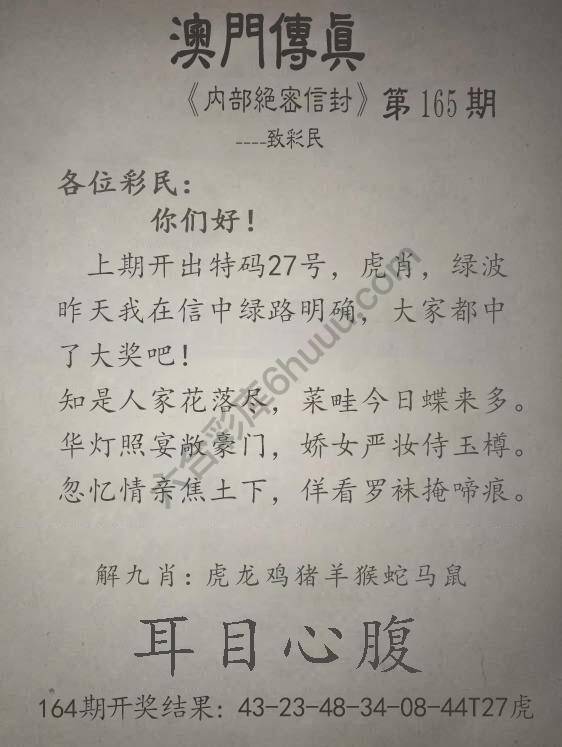 澳門傳眞
《内部絕密信封》第165期
----致彩民
各位彩民：
你们好！
上期开出特码27号，虎肖，绿波
昨天我在信中绿路明确，大家都中
了大奖吧！
知是人家花落尽，菜畦今日蝶来多。
华灯照宴敞豪门，娇女严妆侍玉樽。
忽忆情亲焦土下，佯看罗袜掩啼痕。
解九肖：虎龙鸡猪羊猴蛇马鼠
耳目心腹
164期开奖结果：43-23-48-34-08-44T27虎
六合彩库6huuu.com